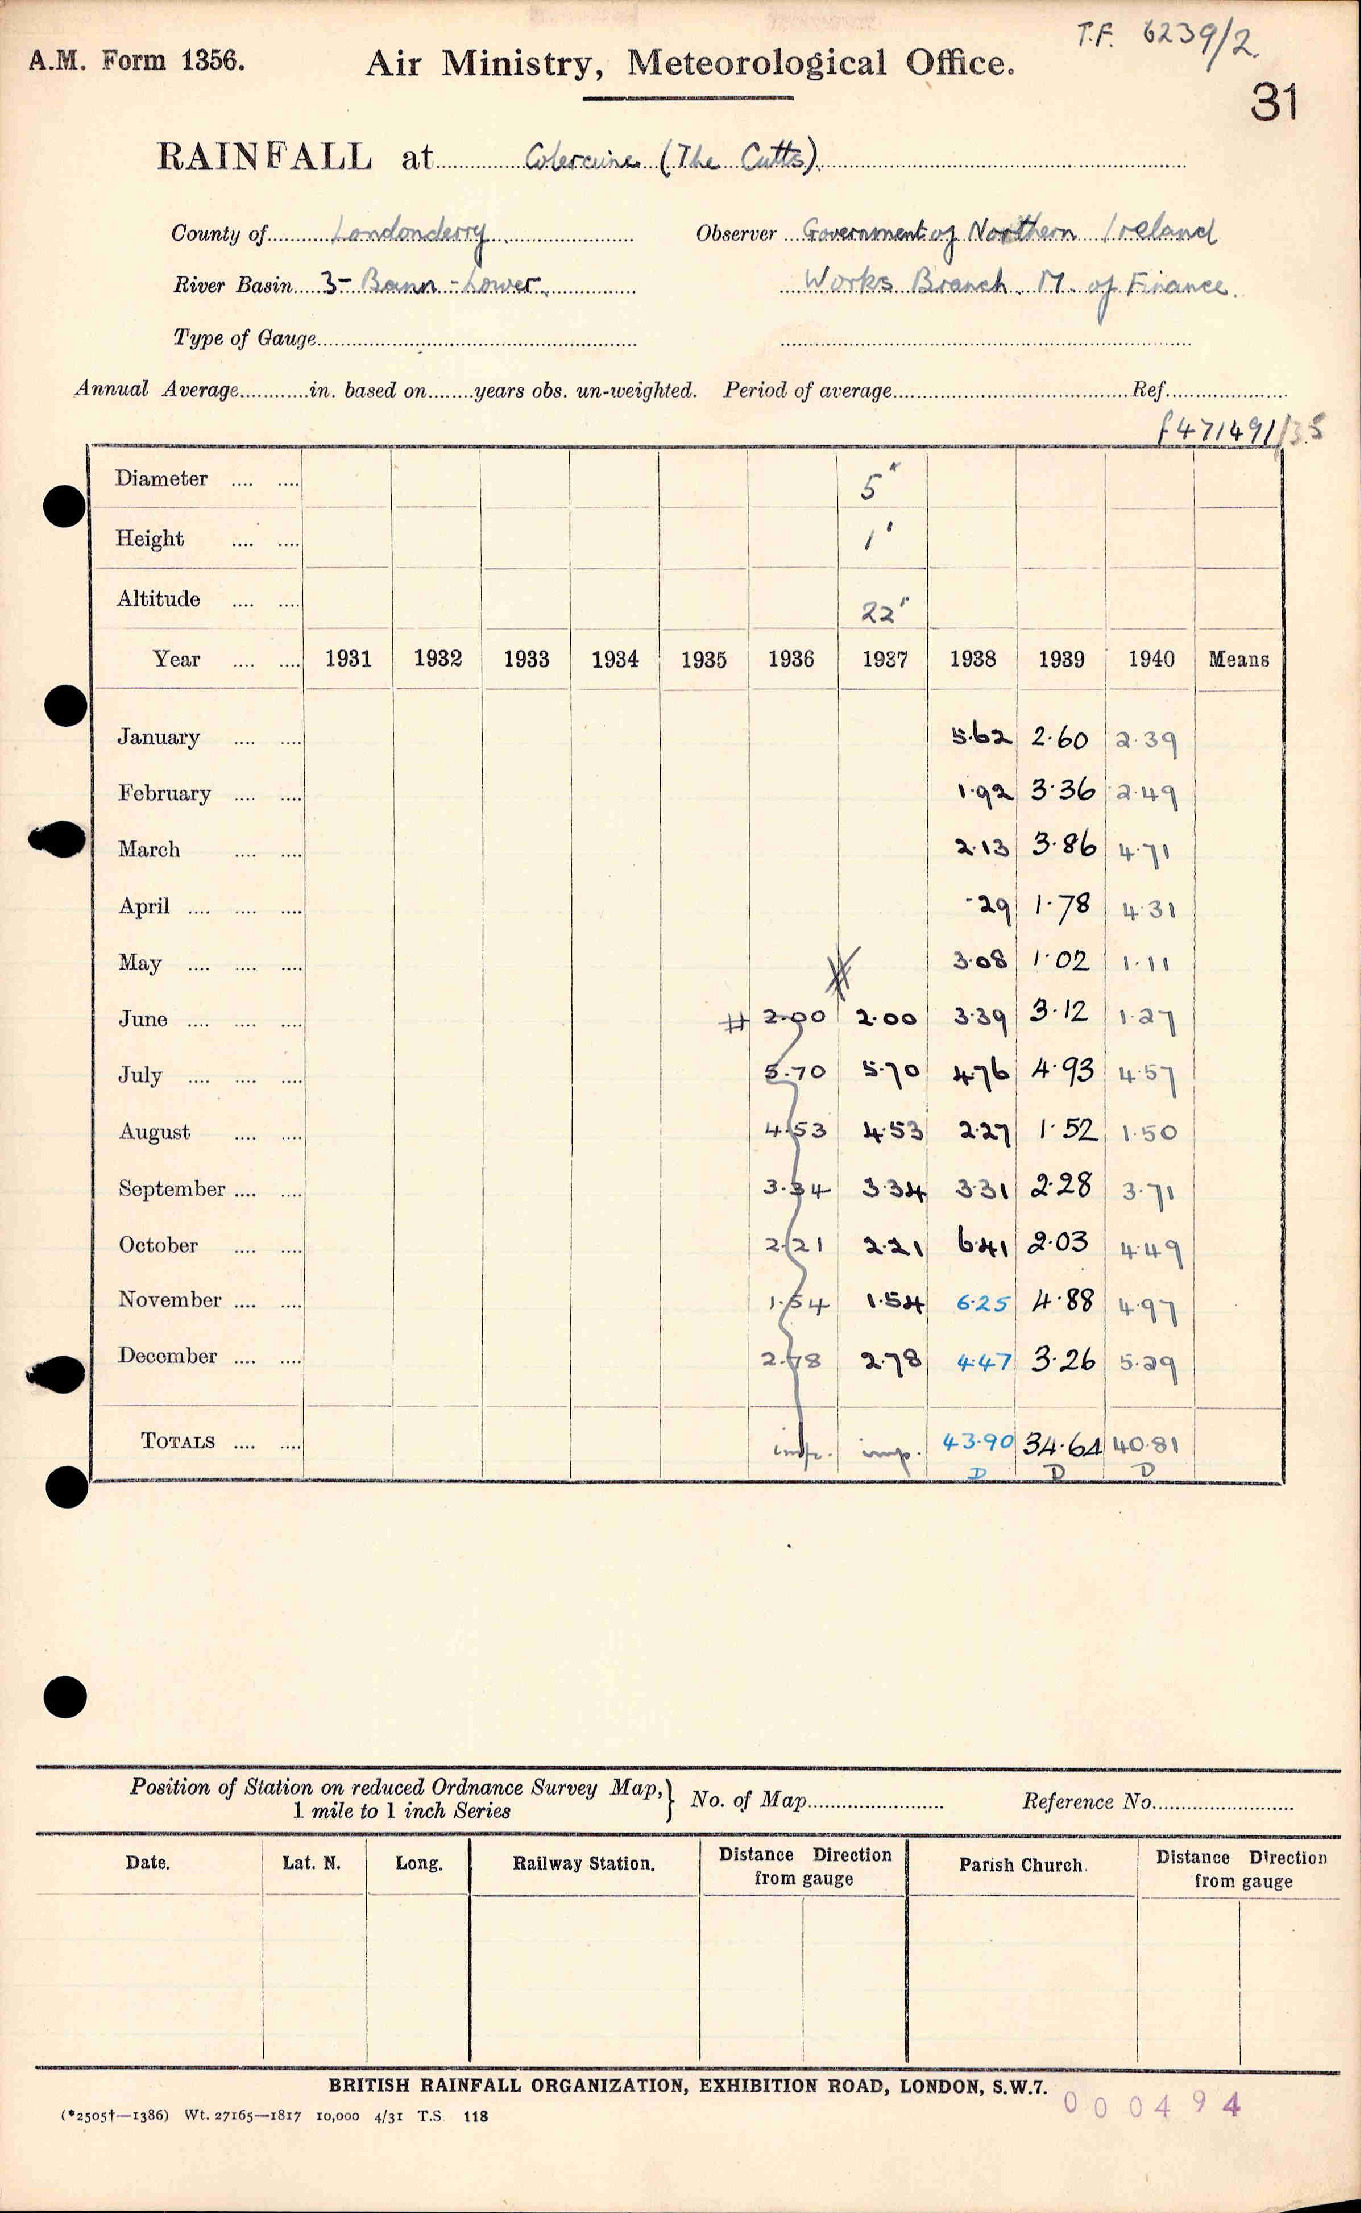 T.F. 6239/2.
A.M. Form 1356.
Air Ministry, Meteorological Office.
31
RAINFALL at Coleraine (The Cutts).
County of Londonderry. Observer Government of Northern Ireland
River Basin 3- Bann - Lower. Works Branch. M. of Finance.
Type of Gauge
Annual Average in. based on years obs. un-weighted. Period of average Ref.
f471491/35
Diameter .... .... 5"
Height .... .... 1'
Altitude .... .... 22'
Year .... .... 1931 1932 1933 1934 1935 1936 1937 1938 1939 1940 Means
January .... .... 5.62 2.60 2.39
February .... .... 1.92 3.36 2.49
March .... .... 2.13 3.86 4.71
April .... .... .... .29 1.78 4.31
May .... .... .... 3.08 1.02 1.11
June .... .... .... # 2.00 2.00 3.39 3.12 1.27
July .... .... .... 5.70 5.70 4.76 4.93 4.57
August .... .... 4.53 4.53 2.27 1.52 1.50
September .... .... 3.34 3.34 3.31 2.28 3.71
October .... .... 2.21 2.21 6.41 2.03 4.49
November .... .... 1.54 1.54 6.25 4.88 4.97
December .... .... 2.78 2.78 4.47 3.26 5.29
TOTALS .... .... imp. imp. 43.90 34.64 40.81
D D D
Position of Station on reduced Ordnance Survey Map, } No. of Map Reference No.
1 mile to 1 inch Series
Date. Lat. N. Long. Railway Station. Distance Direction from gauge Parish Church. Distance Direction from gauge
BRITISH RAINFALL ORGANIZATION, EXHIBITION ROAD, LONDON, S.W.7.
000494
(*2505†—1386) Wt. 27165—1817 10,000 4/31 T.S. 118